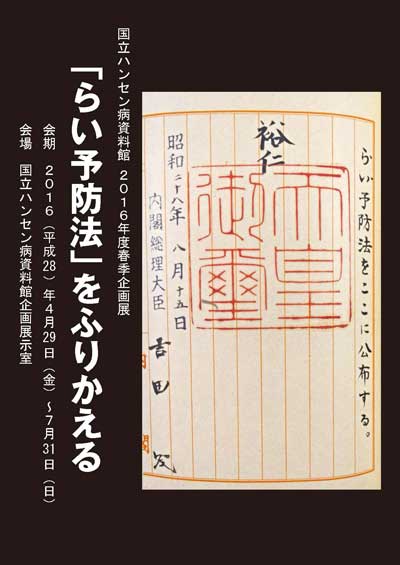 らい予防法をここに公布する。
裕仁
天皇
御璽
昭和二十八年 八月十五日
内閣総理大臣 吉田 茂
国立ハンセン病資料館 2016年度春季企画展
「らい予防法」をふりかえる
会期 2016(平成28)年4月29日(金)~7月31日(日)
会場 国立ハンセン病資料館企画展示室